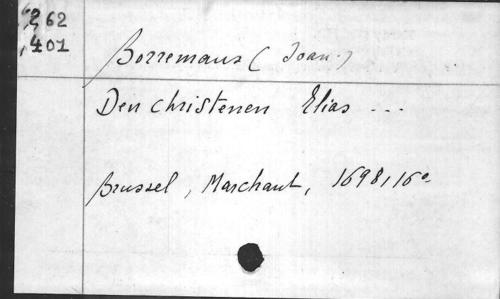 262
401
Borremans (Joan.)
Den christenen Elias ...
Brussel, Marchant, 1698, 16°